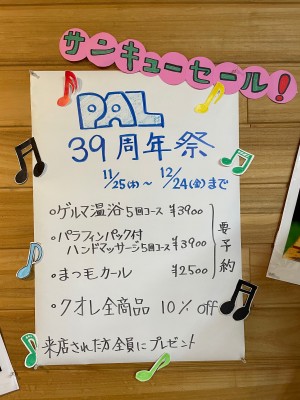 サンキューセール!
PAL
39周年祭
11/25(水)〜12/24(金)まで
○ゲルマ温浴5回コース ¥3900
○パラフィンパック付
ハンドマッサージ5回コース ¥3900
○まつ毛カール ¥2500
要予約
○クオレ全商品 10% off
来店された方全員にプレゼント